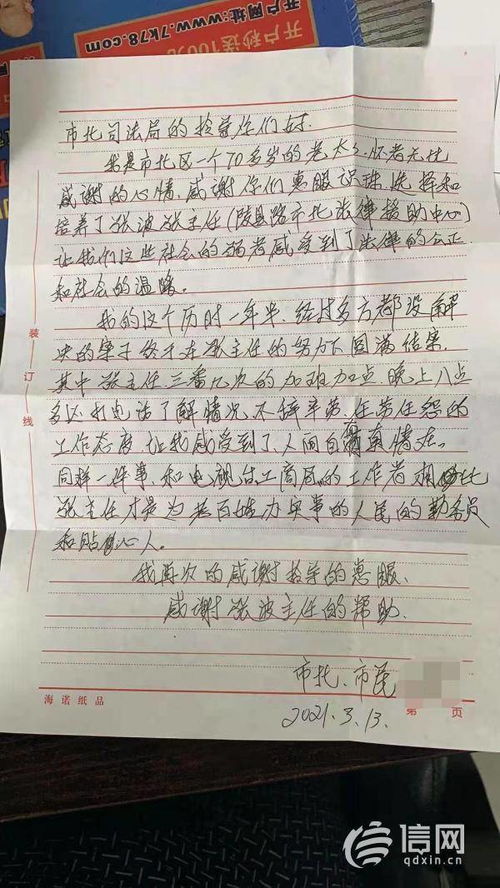 开户秒送100元
开户网址:www.7k78.com
市北司法局的领导你们好.
我是市北区一个70多岁的老太太,怀着无比
感谢的心情,感谢你们惠眼识珠,选择和
培养了张波张主任(陵县路市北法律援助中心)
让我们这些社会的弱者感受到了法律的公正
和社会的温暖。
我的这个历时一年半、经过多方都没解
决的案子终于在张主任的努力下圆满结案.
其中张主任三番几次的加班加点晚上八点
多还打电话了解情况,不辞辛劳、任劳任怨的
工作态度,让我感受到了,人间自有真情在。
同样一件事,和电视台、工商局的工作者相比
张主任才是为老百姓办实事的人民的勤务员
和贴心人。
我再次的感谢领导的惠眼.
感谢张波主任的帮助.
市北、市民
2021.3.13.
装订线
海诺纸品
第 页
信网
qdxin.cn